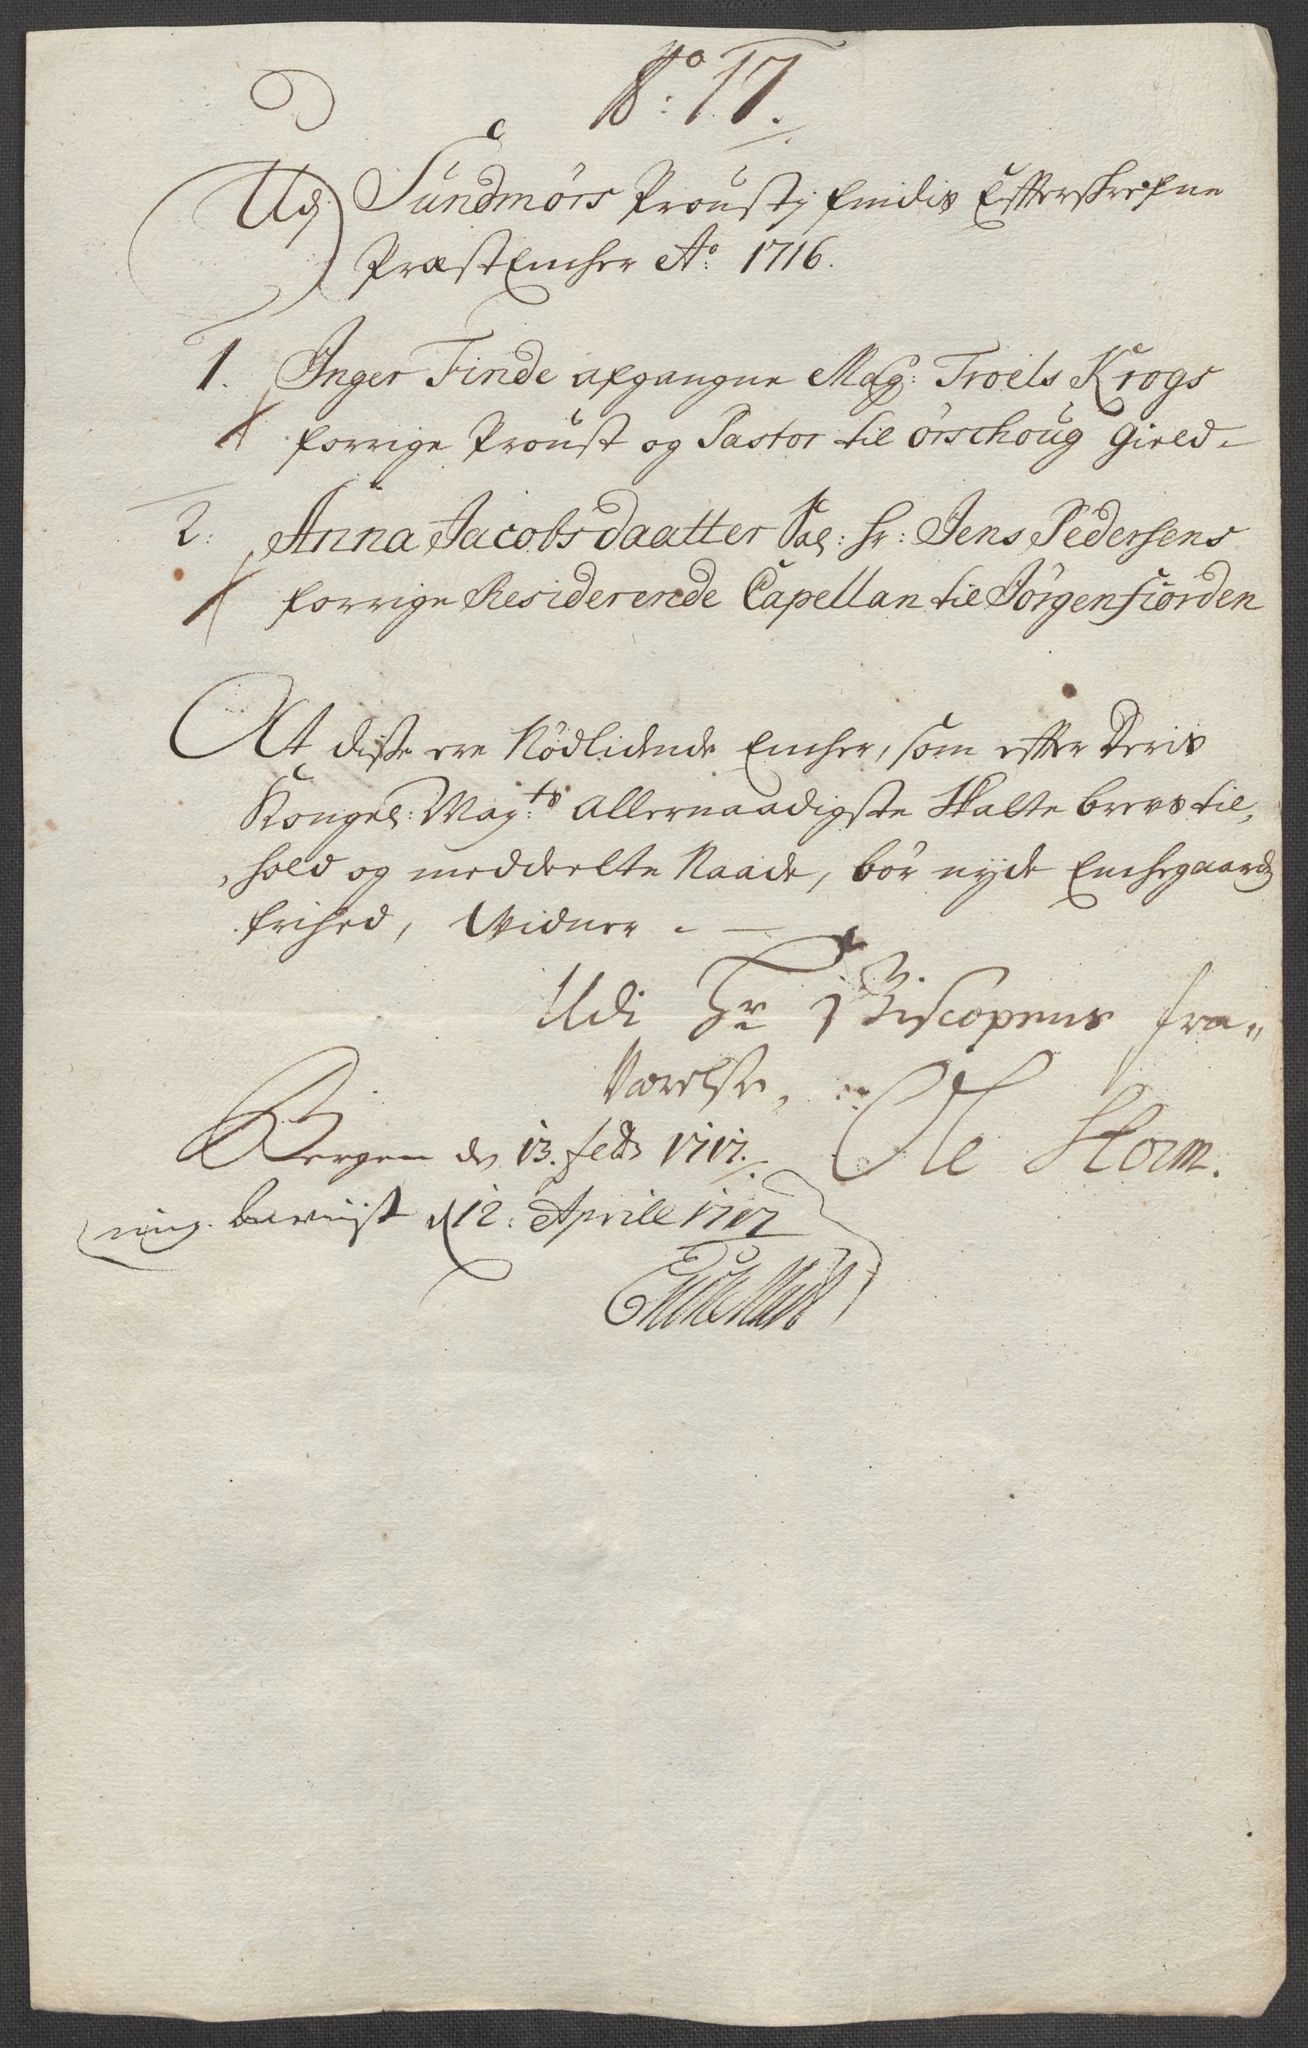 No: 17.
Udj Sundmørs Proustj findis Effterskrefne
PræstEncher Ao: 1716.
1. Inger Finde afgangne Mag: Troels Krogs
forrige Proust og Pastor til Ørschoug Gield
2: Anna Jacobsdaatter Sal: Hr: Jens Pedersens
forrige Residerende Capellan til Jørgenfiorden
At disse ere Nødlidende Encher, som effter Deris
Kongel: May:ts Allernaadigste Skatte brevs til,
,hold og meddeelte Naade, bør nyde Enchegaards
frihed, Vidner
Udi Hr Biscopens fra-
værelse,
Ole Storm.
Bergen d. 13. febr 1717.
beviist d 12: Aprill 1717